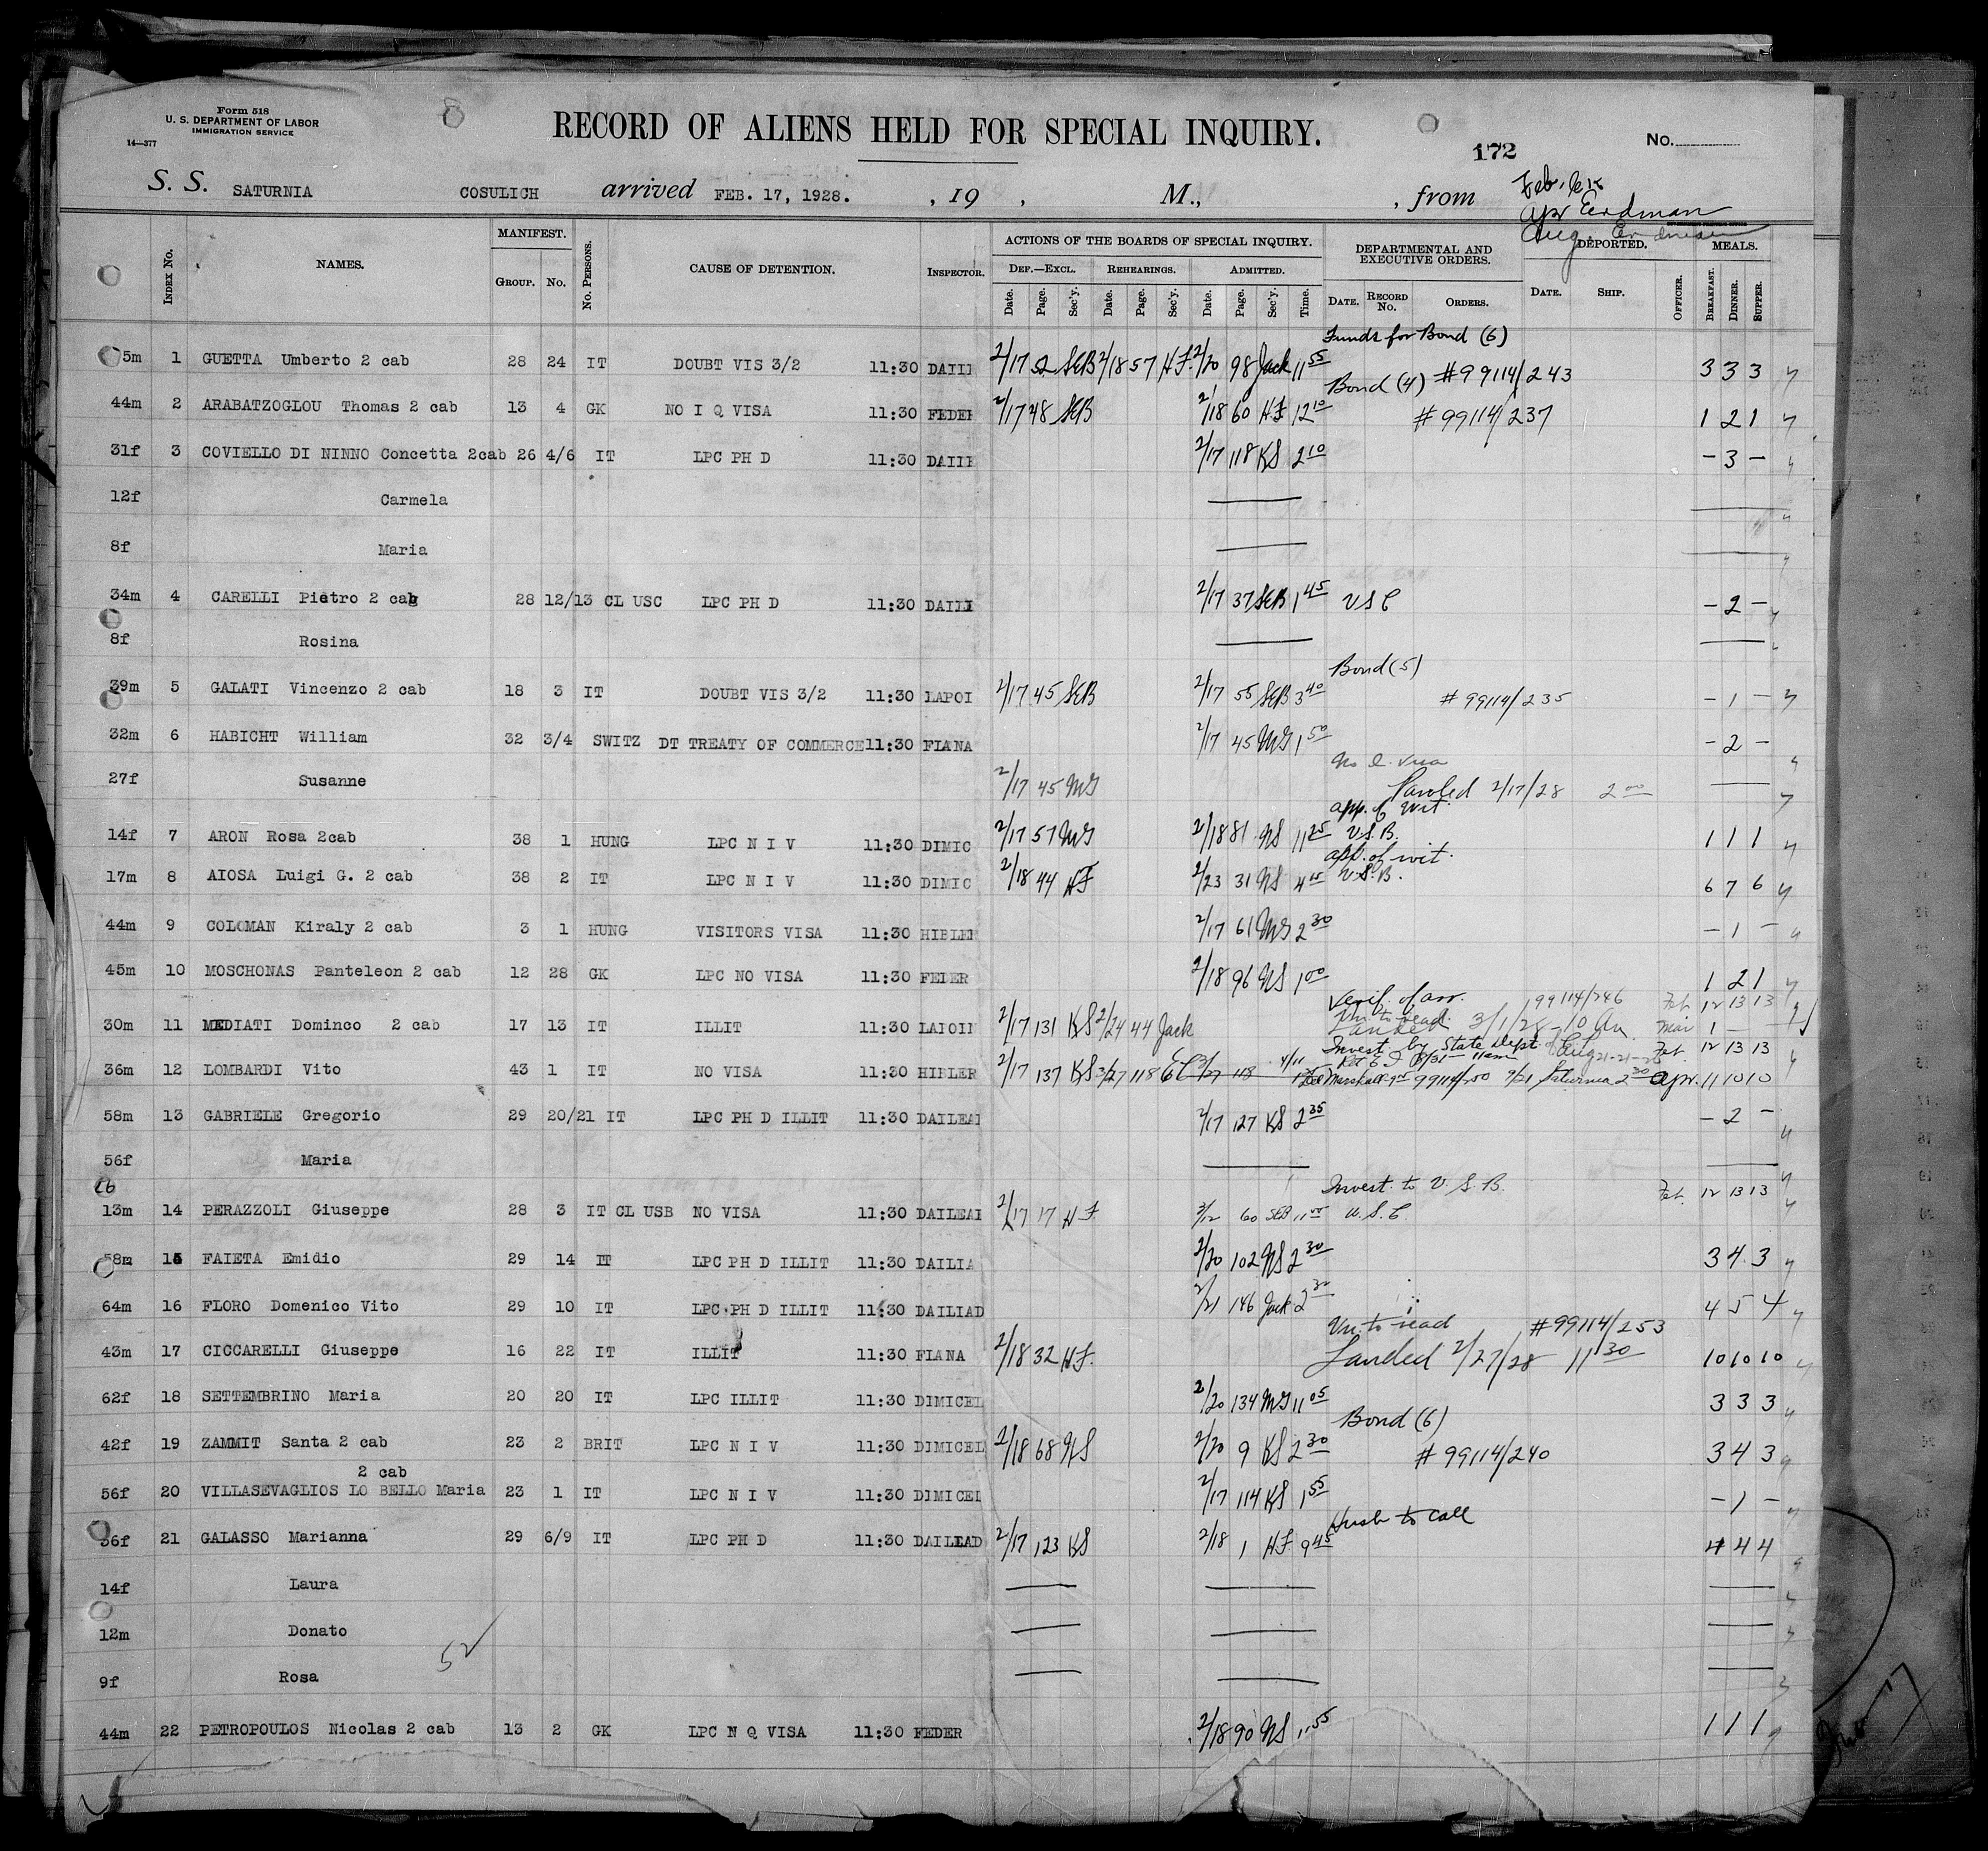 Form 518
U. S. DEPARTMENT OF LABOR
IMMIGRATION SERVICE
14—377
RECORD OF ALIENS HELD FOR SPECIAL INQUIRY.
172
No.
S. S. SATURNIA COSULICH arrived FEB. 17, 1928. , 19 , M., , from
Erdman
Aug. Erdman
INDEX No. NAMES. MANIFEST. GROUP. No. No. PERSONS. CAUSE OF DETENTION. INSPECTOR. ACTIONS OF THE BOARDS OF SPECIAL INQUIRY. DEF.—EXCL. REHEARINGS. ADMITTED. DEPARTMENTAL AND EXECUTIVE ORDERS. DEPORTED. MEALS.
Date. Page. Sec'y. Date. Page. Sec'y. Date. Page. Sec'y. Time. DATE. RECORD No. ORDERS. DATE. SHIP. OFFICER. BREAKFAST. DINNER. SUPPER.
Funds for Bond (6)
5m 1 GUETTA Umberto 2 cab 28 24 IT DOUBT VIS 3/2 11:30 2/17 52 SEB 2/18 57 HF. 2/20 98 Jack 11 55 #99114/243 3 3 3
Bond (4)
44m 2 ARABATZOGLOU Thomas 2 cab 13 4 GK NO I Q VISA 11:30 FEDER 2/17 48 SEB 2/18 60 HF 12 10 #99114/237 1 2 1
31f 3 COVIELLO DI NINNO Concetta 2cab 26 4/6 IT LPC PH D 11:30 2/17 118 KS 2 10 - 3 -
12f Carmela
8f Maria
34m 4 CARELLI Pietro 2 cab 28 12/13 CL USC LPC PH D 11:30 2/17 37 SEB 1 45 USC - 2 -
8f Rosina
Bond (5)
39m 5 GALATI Vincenzo 2 cab 18 3 IT DOUBT VIS 3/2 11:30 LAPOI 2/17 45 SEB 2/17 55 SEB 3 40 #99114/235 - 1 -
32m 6 HABICHT William 32 3/4 SWITZ DT TREATY OF COMMERCE 11:30 FIANA 2/17 45 MG 1 50 - 2 -
27f Susanne 2/17 45 MG Paroled 2/17/28 2 00
app. of wit.
14f 7 ARON Rosa 2cab 38 1 HUNG LPC N I V 11:30 DIMIC 2/17 57 MG 2/18 81 NS 11 25 V.S.B. 1 1 1
app. of wit.
17m 8 AIOSA Luigi G. 2 cab 38 2 IT LPC N I V 11:30 DIMIC 2/18 44 HF 2/23 31 NS V.S.B. 6 7 6
44m 9 COLOMAN Kiraly 2 cab 3 1 HUNG VISITORS VISA 11:30 HIBLER 2/17 61 MG 2 30 - 1 -
45m 10 MOSCHONAS Panteleon 2 cab 12 28 GK LPC NO VISA 11:30 FEDER 2/18 96 NS 1 00 1 2 1
Verif. of arr. 99114/246 Feb. 12 13 13
30m 11 MEDIATI Dominco 2 cab 17 13 IT ILLIT 11:30 2/17 131 KS 2/24 44 Jack Un. to read. Landed 3/1/28 - 10 Mar 1
Invest. by State Dept. Feb. 12 13 13
36m 12 LOMBARDI Vito 43 1 IT NO VISA 11:30 HIBLER 2/17 137 KS 3/27 118 118 Saturnia 2 30 Apr. 11 10 10
58m 13 GABRIELE Gregorio 29 20/21 IT LPC PH D ILLIT 11:30 DAILEAD 2/17 127 KS 2 35 - 2 -
56f Maria
Invest. to V.S.B. Feb. 12 13 13
13m 14 PERAZZOLI Giuseppe 28 3 IT CL USB NO VISA 11:30 DAILEAD 2/17 17 HF. 3/12 60 SEB U.S.C.
58m 15 FAIETA Emidio 29 14 IT LPC PH D ILLIT 11:30 DAILIA 2/20 102 NS 2 30 3 4 3
64m 16 FLORO Domenico Vito 29 10 IT LPC PH D ILLIT 11:30 DAILIAD 2/21 146 Jack 2 30 4 5 4
Un. to read #99114/253
43m 17 CICCARELLI Giuseppe 16 22 IT ILLIT 11:30 FIANA 2/18 32 HF. Landed 2/27/28 11 30 10 10 10
62f 18 SETTEMBRINO Maria 20 20 IT LPC ILLIT 11:30 DIMICEL 2/20 134 MG 11 05 3 3 3
Bond (6)
42f 19 ZAMMIT Santa 2 cab 23 2 BRIT LPC N I V 11:30 DIMICEL 2/18 68 NS 2/20 9 KS 2 30 #99114/240 3 4 3
2 cab
56f 20 VILLASEVAGLIOS LO BELLO Maria 23 1 IT LPC N I V 11:30 DIMICEL 2/17 114 KS 1 55 - 1 -
Husb to call
36f 21 GALASSO Marianna 29 6/9 IT LPC PH D 11:30 DAILEAD 2/17 123 KS 2/18 1 HF. 9 45 4 4 4
14f Laura
12m Donato
52
9f Rosa
44m 22 PETROPOULOS Nicolas 2 cab 13 2 GK LPC N Q VISA 11:30 FEDER 2/18 90 NS 1 55 1 1 1